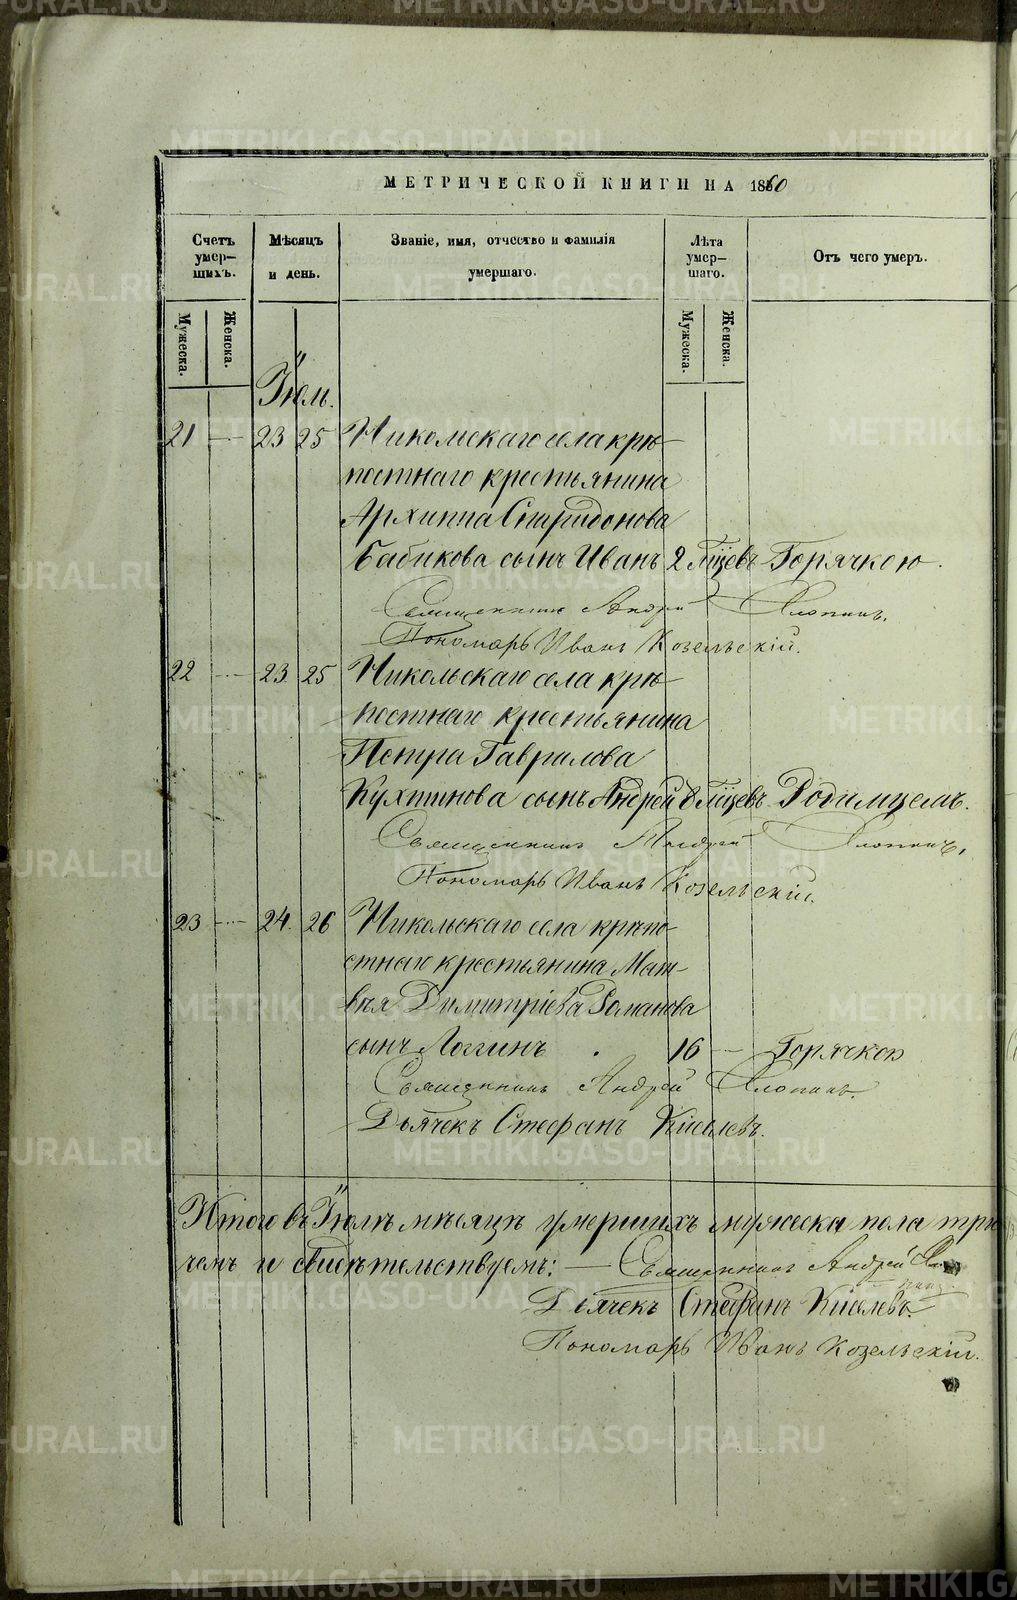 МЕТРИЧЕСКОЙ КНИГИ НА 1860
Счетъ умер-
шихъ.
Мѣсяцъ
и день.
Званіе, имя, отчество и фамилія
умершаго.
Лѣта
умер-
шаго.
Отъ чего умеръ.
Мужеска.
Женска.
Мужеска.
Женска.
Іюль.
21 — 23 25 Никольскаго села крѣ-
постнаго крестьянина
Архиппа Спиридонова
Бабикова сынъ Иванъ 2 мѣцевъ Горячкою.
Священникъ Андрей Хлопинъ.
Пономарь Иванъ Козельскій.
22 — 23 25 Никольскаго села крѣ-
постнаго крестьянина
Петра Гаврилова
Кухтинова сынъ Андрей 8 мѣцевъ Родимцемъ.
Священникъ Андрей Хлопинъ.
Пономарь Иванъ Козельскій.
23 — 24. 26 Никольскаго села крѣпо-
стнаго крестьянина Мат-
вѣя Димитріева Романова
сынъ Логгинъ 16 — Горячкою
Священникъ Андрей Хлопинъ.
Дьячекъ Стефанъ Киселевъ.
Итого въ Іюлѣ мѣсяцѣ умершихъ мужеска пола три
чемъ и свидѣтельствуемъ: — Священникъ Андрей Хло-
пинъ
Дьячекъ Стефанъ Киселевъ.
Пономарь Иванъ Козельскій.
METRIKI.GASO-URAL.RU